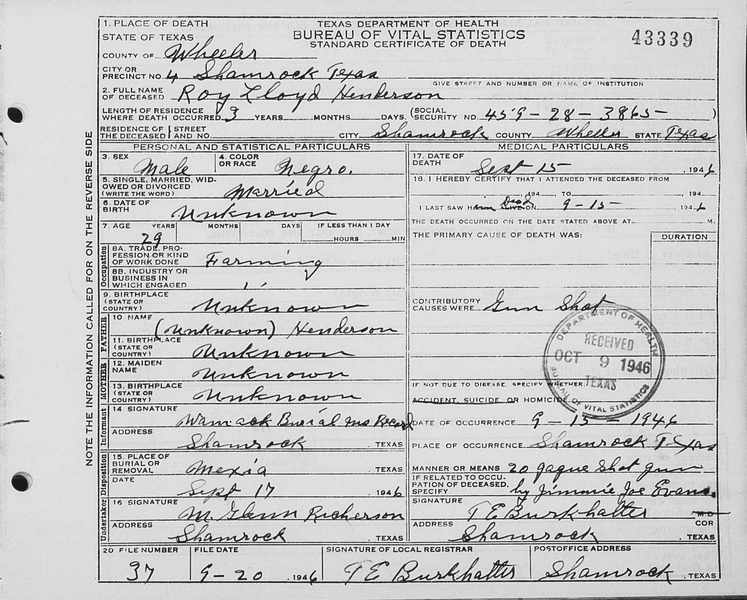 TEXAS DEPARTMENT OF HEALTH
BUREAU OF VITAL STATISTICS
STANDARD CERTIFICATE OF DEATH
43339
1. PLACE OF DEATH
STATE OF TEXAS
COUNTY OF Wheeler
CITY OR PRECINCT NO. 4 Shamrock Texas
GIVE STREET AND NUMBER OR NAME OF INSTITUTION
2. FULL NAME OF DECEASED Roy Lloyd Henderson
LENGTH OF RESIDENCE WHERE DEATH OCCURRED 3 YEARS MONTHS DAYS. (SOCIAL SECURITY NO. 459-28-3865-)
RESIDENCE OF THE DECEASED } STREET AND NO. CITY Shamrock COUNTY Wheeler STATE Texas
NOTE THE INFORMATION CALLED FOR ON THE REVERSE SIDE
PERSONAL AND STATISTICAL PARTICULARS
3. SEX Male
4. COLOR OR RACE Negro.
5. SINGLE, MARRIED, WIDOWED OR DIVORCED (WRITE THE WORD) Married
6. DATE OF BIRTH Unknown
7. AGE YEARS MONTHS DAYS IF LESS THAN 1 DAY
29 HOURS MIN
Occupation
8A. TRADE, PROFESSION OR KIND OF WORK DONE Farming
8B. INDUSTRY OR BUSINESS IN WHICH ENGAGED ''
9. BIRTHPLACE (STATE OR COUNTRY) Unknown
FATHER
10 NAME (Unknown) Henderson
11. BIRTHPLACE (STATE OR COUNTRY) Unknown
MOTHER
12. MAIDEN NAME Unknown
13. BIRTHPLACE (STATE OR COUNTRY) Unknown
Informant
14 SIGNATURE Wamack Burial no Record
ADDRESS Shamrock, TEXAS
Disposition
15. PLACE OF BURIAL OR REMOVAL Mexia, TEXAS
DATE Sept 17 1946
Undertaker
16 SIGNATURE M. Glenn Richerson
ADDRESS Shamrock, TEXAS
MEDICAL PARTICULARS
17. DATE OF DEATH Sept 15, 1946
18. I HEREBY CERTIFY THAT I ATTENDED THE DECEASED FROM
194 TO 194
I LAST SAW H Dead ON 9-15- 1946
THE DEATH OCCURRED ON THE DATE STATED ABOVE AT M.
THE PRIMARY CAUSE OF DEATH WAS: DURATION
CONTRIBUTORY CAUSES WERE: Gun Shot
DEPARTMENT OF HEALTH
RECEIVED
OCT 9 1946
TEXAS
BUREAU OF VITAL STATISTICS
IF NOT DUE TO DISEASE, SPECIFY WHETHER:
ACCIDENT, SUICIDE OR HOMICIDE
DATE OF OCCURRENCE 9-15-1946
PLACE OF OCCURRENCE Shamrock Texas
MANNER OR MEANS 20 gague Shot gun
IF RELATED TO OCCUPATION OF DECEASED, SPECIFY by Jimmie Joe Evans.
SIGNATURE T E Burkhalter M D COR
ADDRESS Shamrock, TEXAS
20 FILE NUMBER FILE DATE SIGNATURE OF LOCAL REGISTRAR POSTOFFICE ADDRESS
37 9-20 1946 T E Burkhalter Shamrock, TEXAS